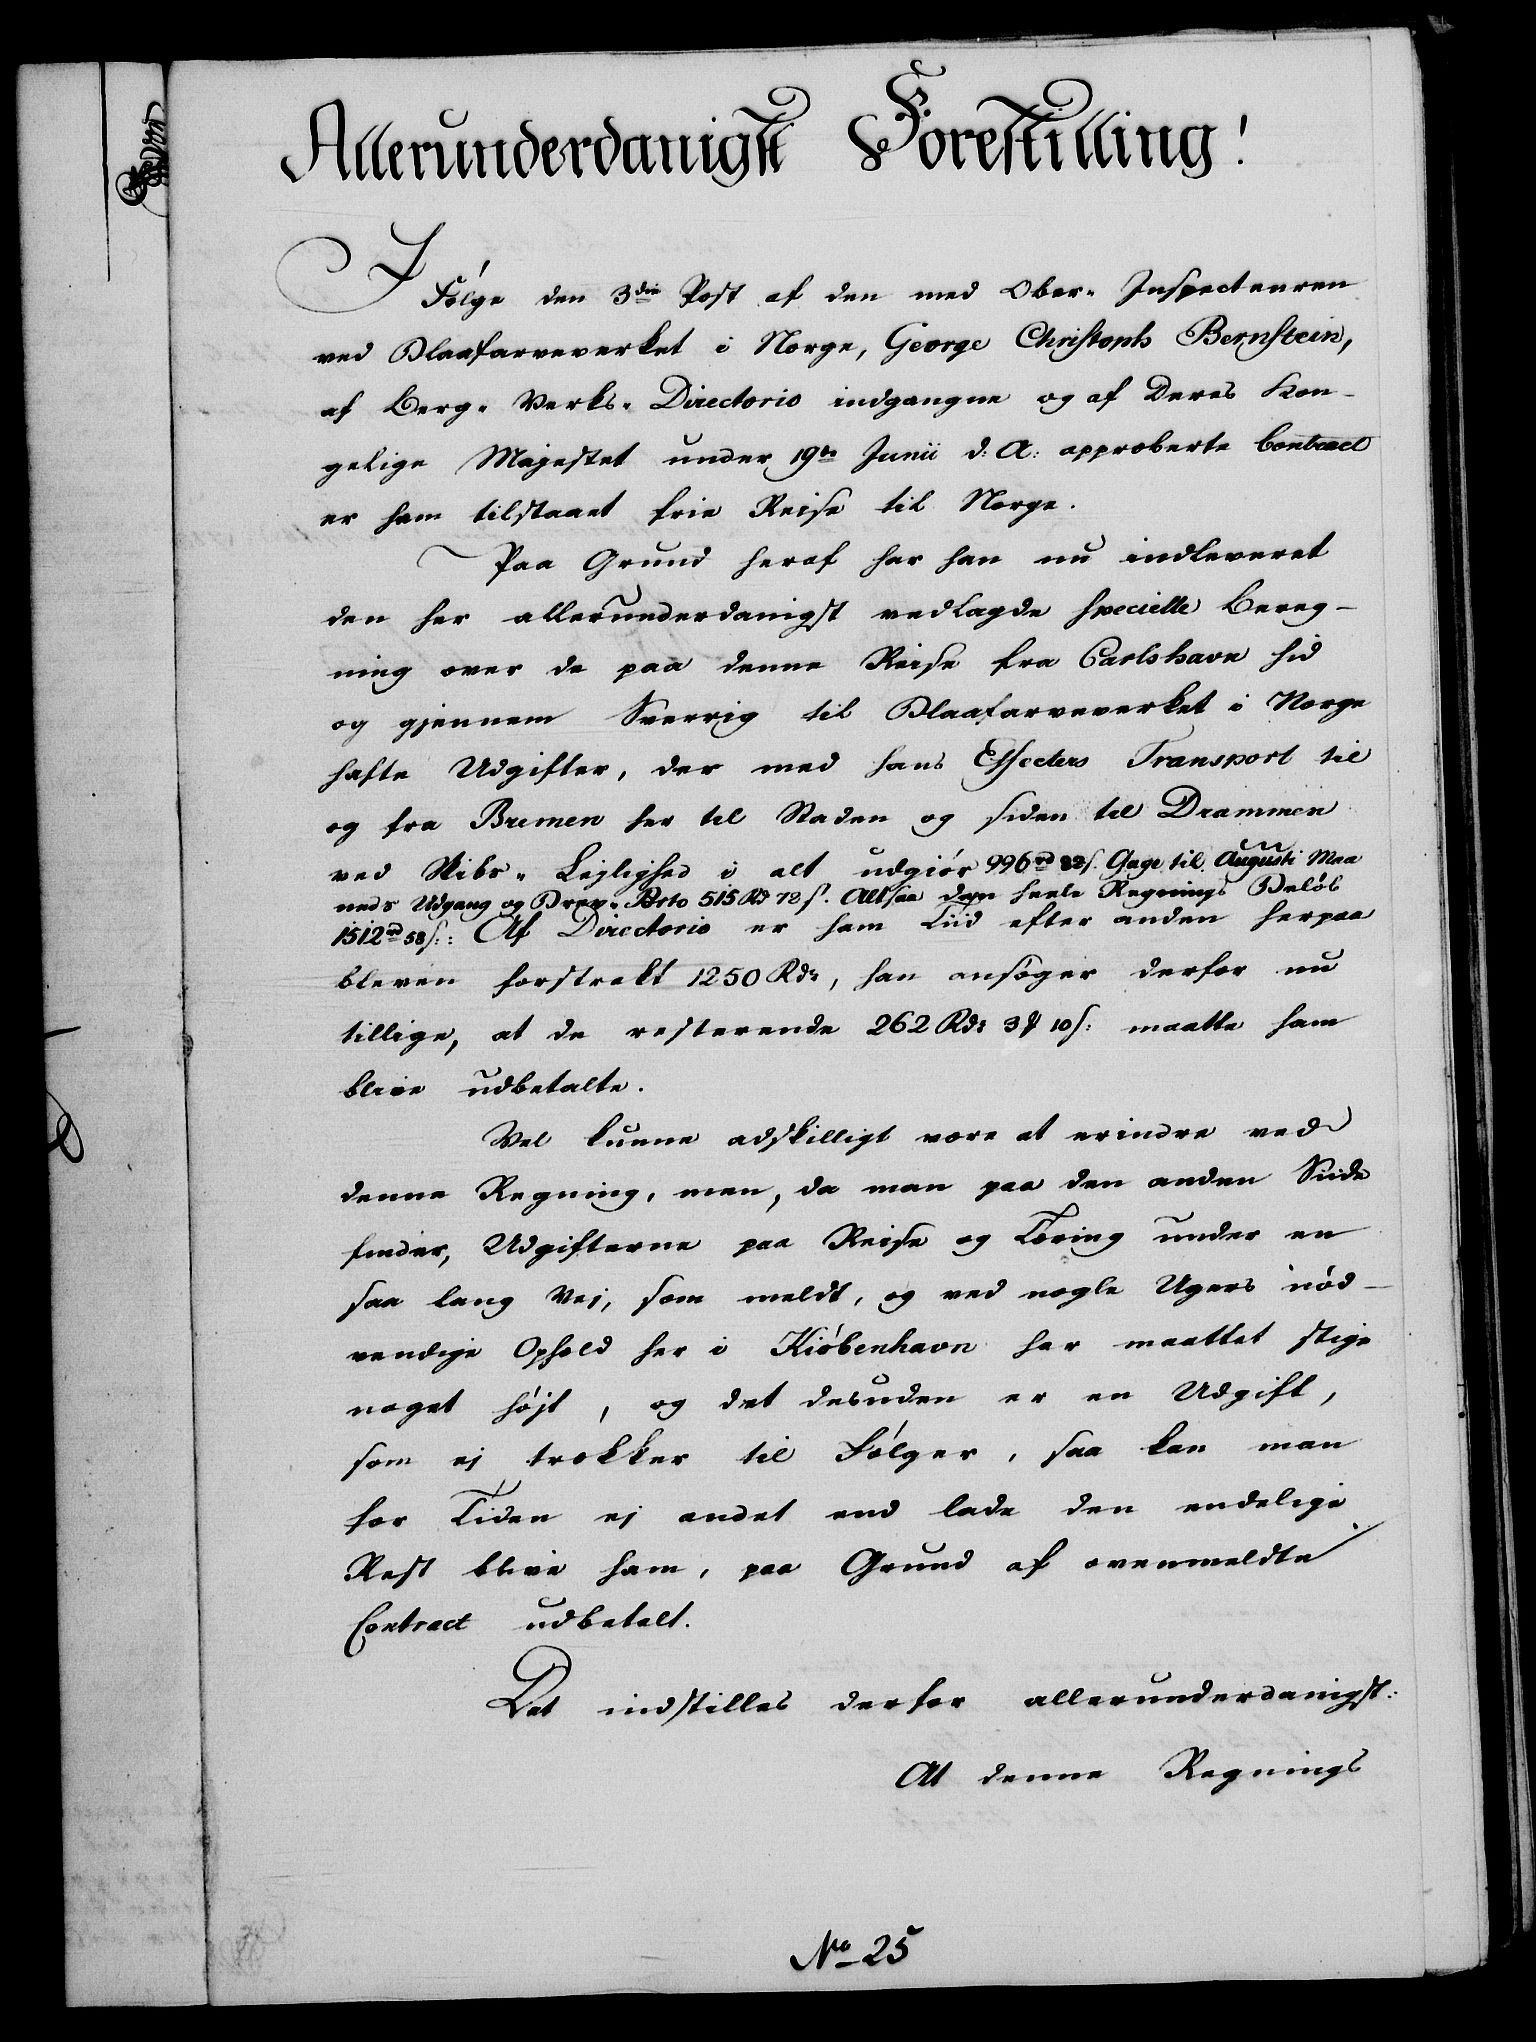 Allerunderdanigst Forestilling!
I
Følge den 3die Post af den med Ober-Inspecteuren
ved Blaafarveverket i Norge, George Christoph Bernstein,
af Berg-Verks-Directorio indgangne og af Deres Kon-
gelige Majestet under 19de Junii d: A: approberte Contract
er ham tilstaaet frie Reise til Norge.
Paa Grund heraf har han nu indleveret
den her allerunderdanigst vedlagde specielle Bereg-
ning over de paa denne Reise fra Carlshavn hid
og gjennem Sverrig til Blaafarveverket i Norge
hafte Udgifter, der med hans Effecters Transport til
og fra Bremen her til Staden og siden til Drammen
ved Skibs-Lejlighed i alt udgiør 996rd 82s. Gage til Augusti Maa
neds Udgang og Brev-Porto 515 Rd 72 s. Altsaa den heele Regnings Beløb
1512rd 58s:: Af Directorio er ham Tiid efter anden herpaa
bleven forstrakt 1250 Rdr, han ansøger derfor nu
tillige, at de resterende 262 Rdr 3 ₰ 10 s: maatte ham
blive udbetalte.
Vel kunne adskilligt være at erindre ved
denne Regning, men, da man paa den anden Siide
finder, Udgifterne paa Reise og Tæring under en
saa lang Vej, som meldt, og ved nogle Ugers nød-
vendige Ophold her i Kiøbenhavn har maattet stige
noget højt, og det desuden er en Udgift,
som ej trækker til Følger, saa kan man
for Tiden ej andet end lade den endelige
Rest blive ham, paa Grund af ovenmeldte
Contract udbetalt.
Det indstilles derfor allerunderdanigst:
At denne Regnings
No 25